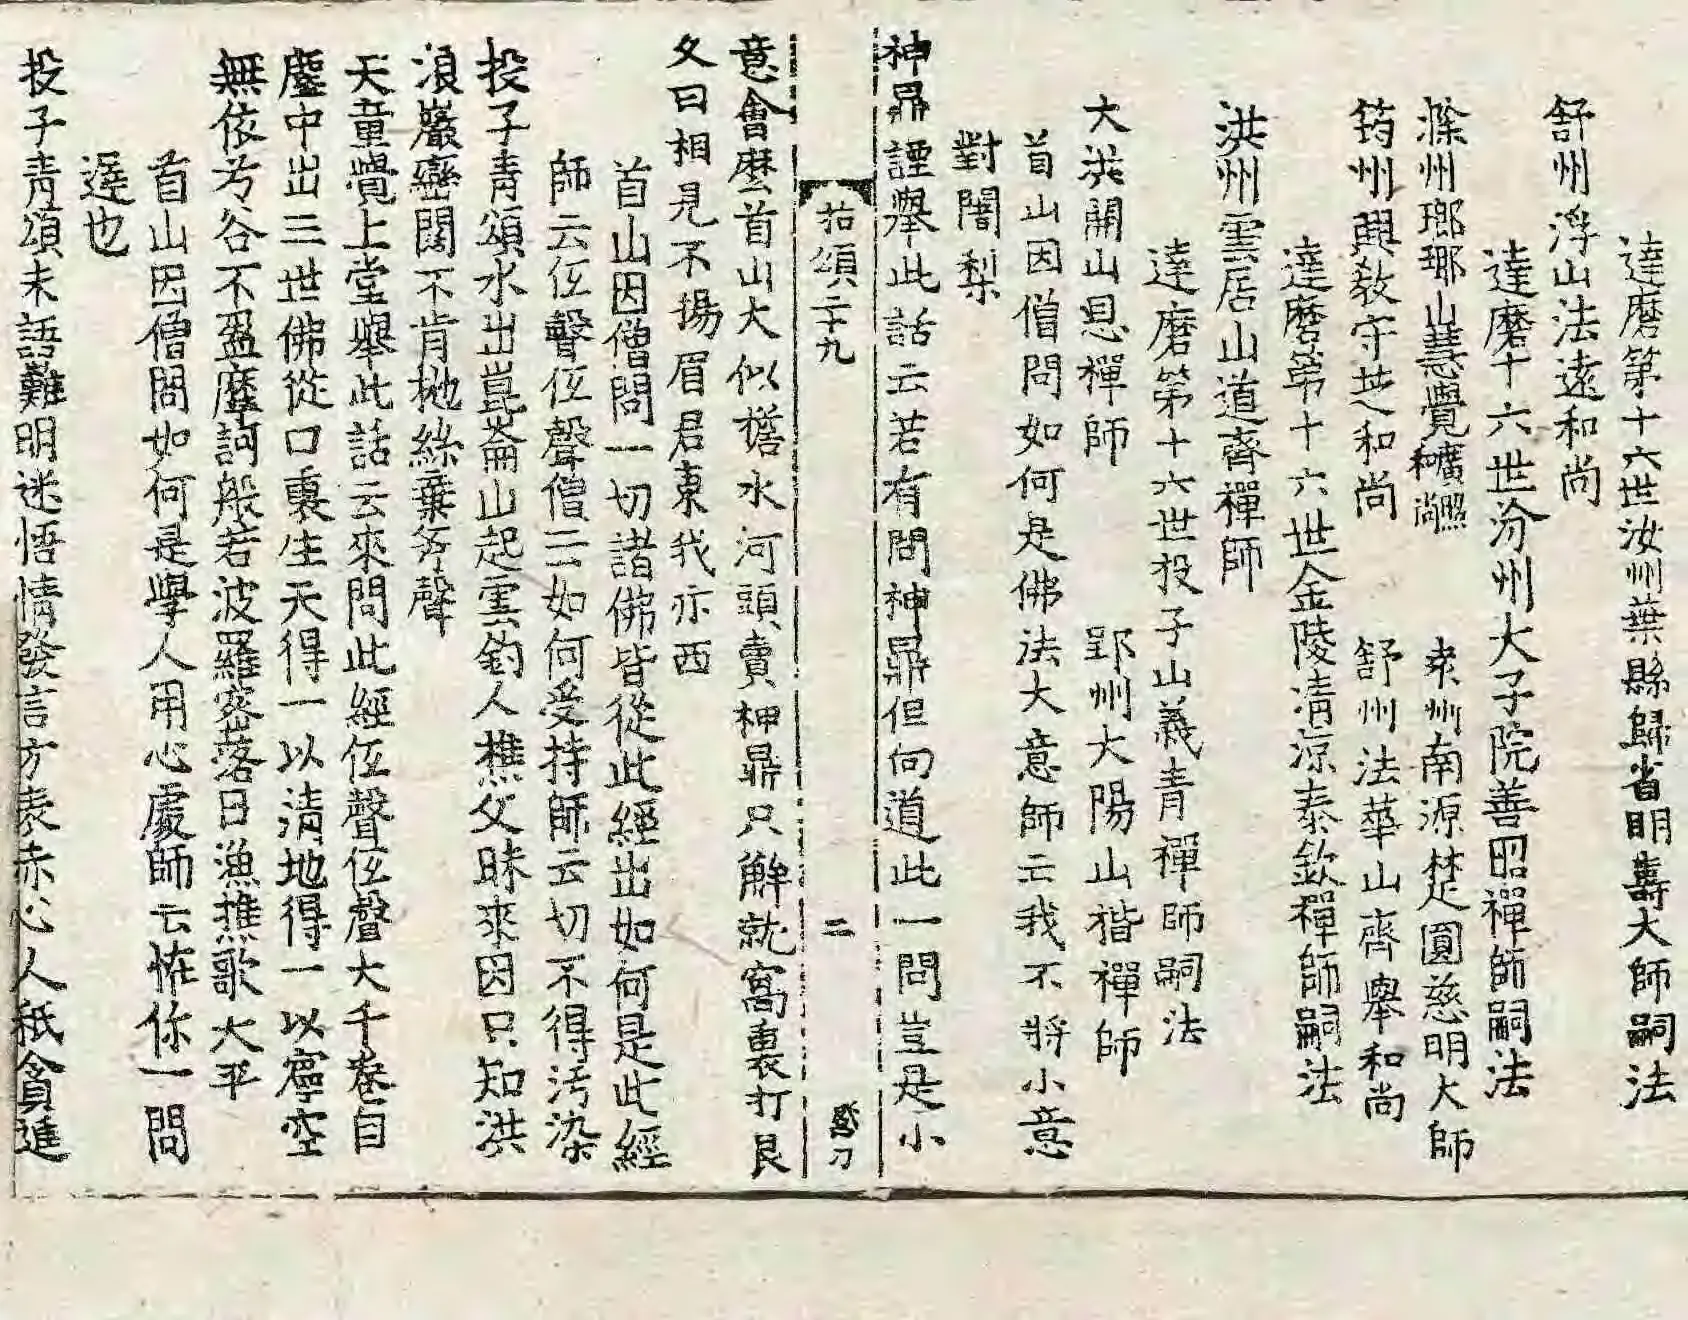 達磨第十六世汝州葉縣歸省明壽大師嗣法
舒州浮山法遠和尚
達磨十六世汾州大子院善昭禪師嗣法
滁州瑯琊山慧覺廣照和尚 袁州南源楚圓慈明大師
筠州興教守芝和尚 舒州法華山齊舉和尚
達磨第十六世金陵淸涼泰欽禪師嗣法
洪州雲居山道齊禪師
達磨第十六世投子山義青禪師嗣法
大洪開山恩禪師 郢州大陽山楷禪師
首山因僧問如何是佛法大意師云我不將小意
對闍梨
神鼎諲舉此話云若有問神鼎但向道此一問豈是小
拈頌二十九 二 刀
意會麼首山大似檐水河頭賣神鼎只解就窩裏打艮
又曰相見不揚眉君東我亦西
首山因僧問一切諸佛皆從此經出如何是此經
師云伍聲伍聲僧云如何受持師云切不得汚染
投子青頌水出崑崙山起雲釣人樵父昧來因只知洪
浪巖巒闊不肯抛絲棄斧聲
天童覺上堂舉此話云來問此經伍聲伍聲大千卷自
塵中出三世佛從口裏生天得一以淸地得一以寧空
無依兮谷不盈摩訶般若波羅密落日漁樵歌大平
首山因僧問如何是學人用心處師云恠你一問
遅也
投子青頌未語難明迷悟情發言方表赤心人秖貪進